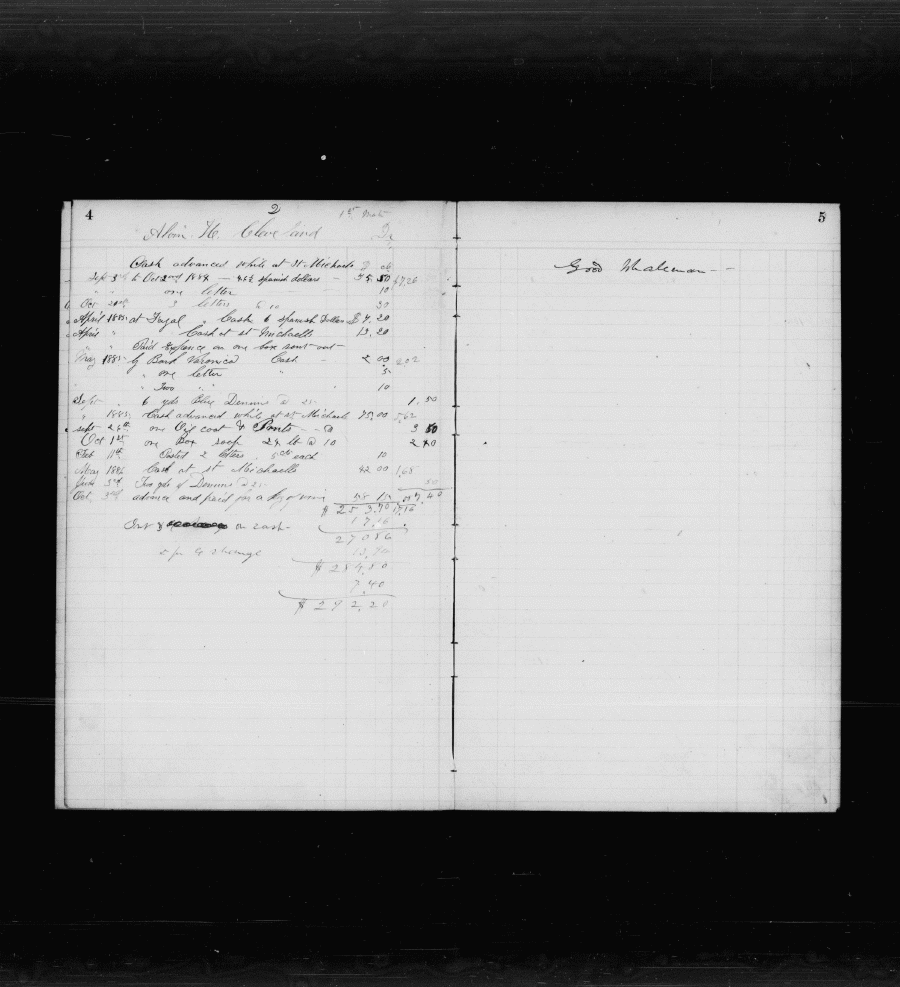 4
2
1st Mate
Alvin H. Cleveland
Dr
Cash advanced while at St Michaels $ cts
Sept 3rd to Oct 2nd 1884 — spanish dollars — 75.50 67.26
" " one letter 10
Oct 20th 3 letters 30
April 1885 at Fayal " Cash 6 spanish Dollars $ 7.20
April " Cash at st Michaells 13.20
" " Paid Expence on one box sent out
May 1885 by Bark Veronica Cash - 2 00 202
" one letter " 5
" Two " " 10
Sept " 6 yds Blue Denims @ 25 1.50
" 1885 Cash advanced while at st Michaels 75.00 5.62
sept 26th one Oyl coat & Pants - @ 3 50
Oct 1st one Box soap 24 lb @ 10 2 40
Feb 11th Posted 2 letters . 5cts each 10
Mar 1886 Cash at st Michaells 42 00 1.68
June 3rd Two yds of Denims @ 25 50
Oct 3rd advance and paid for a
$ 253.70 17.16
Int on cash 17.16
270 86
13.94
$ 284.80
7.40
$ 292.20
5
Good Whaleman - -